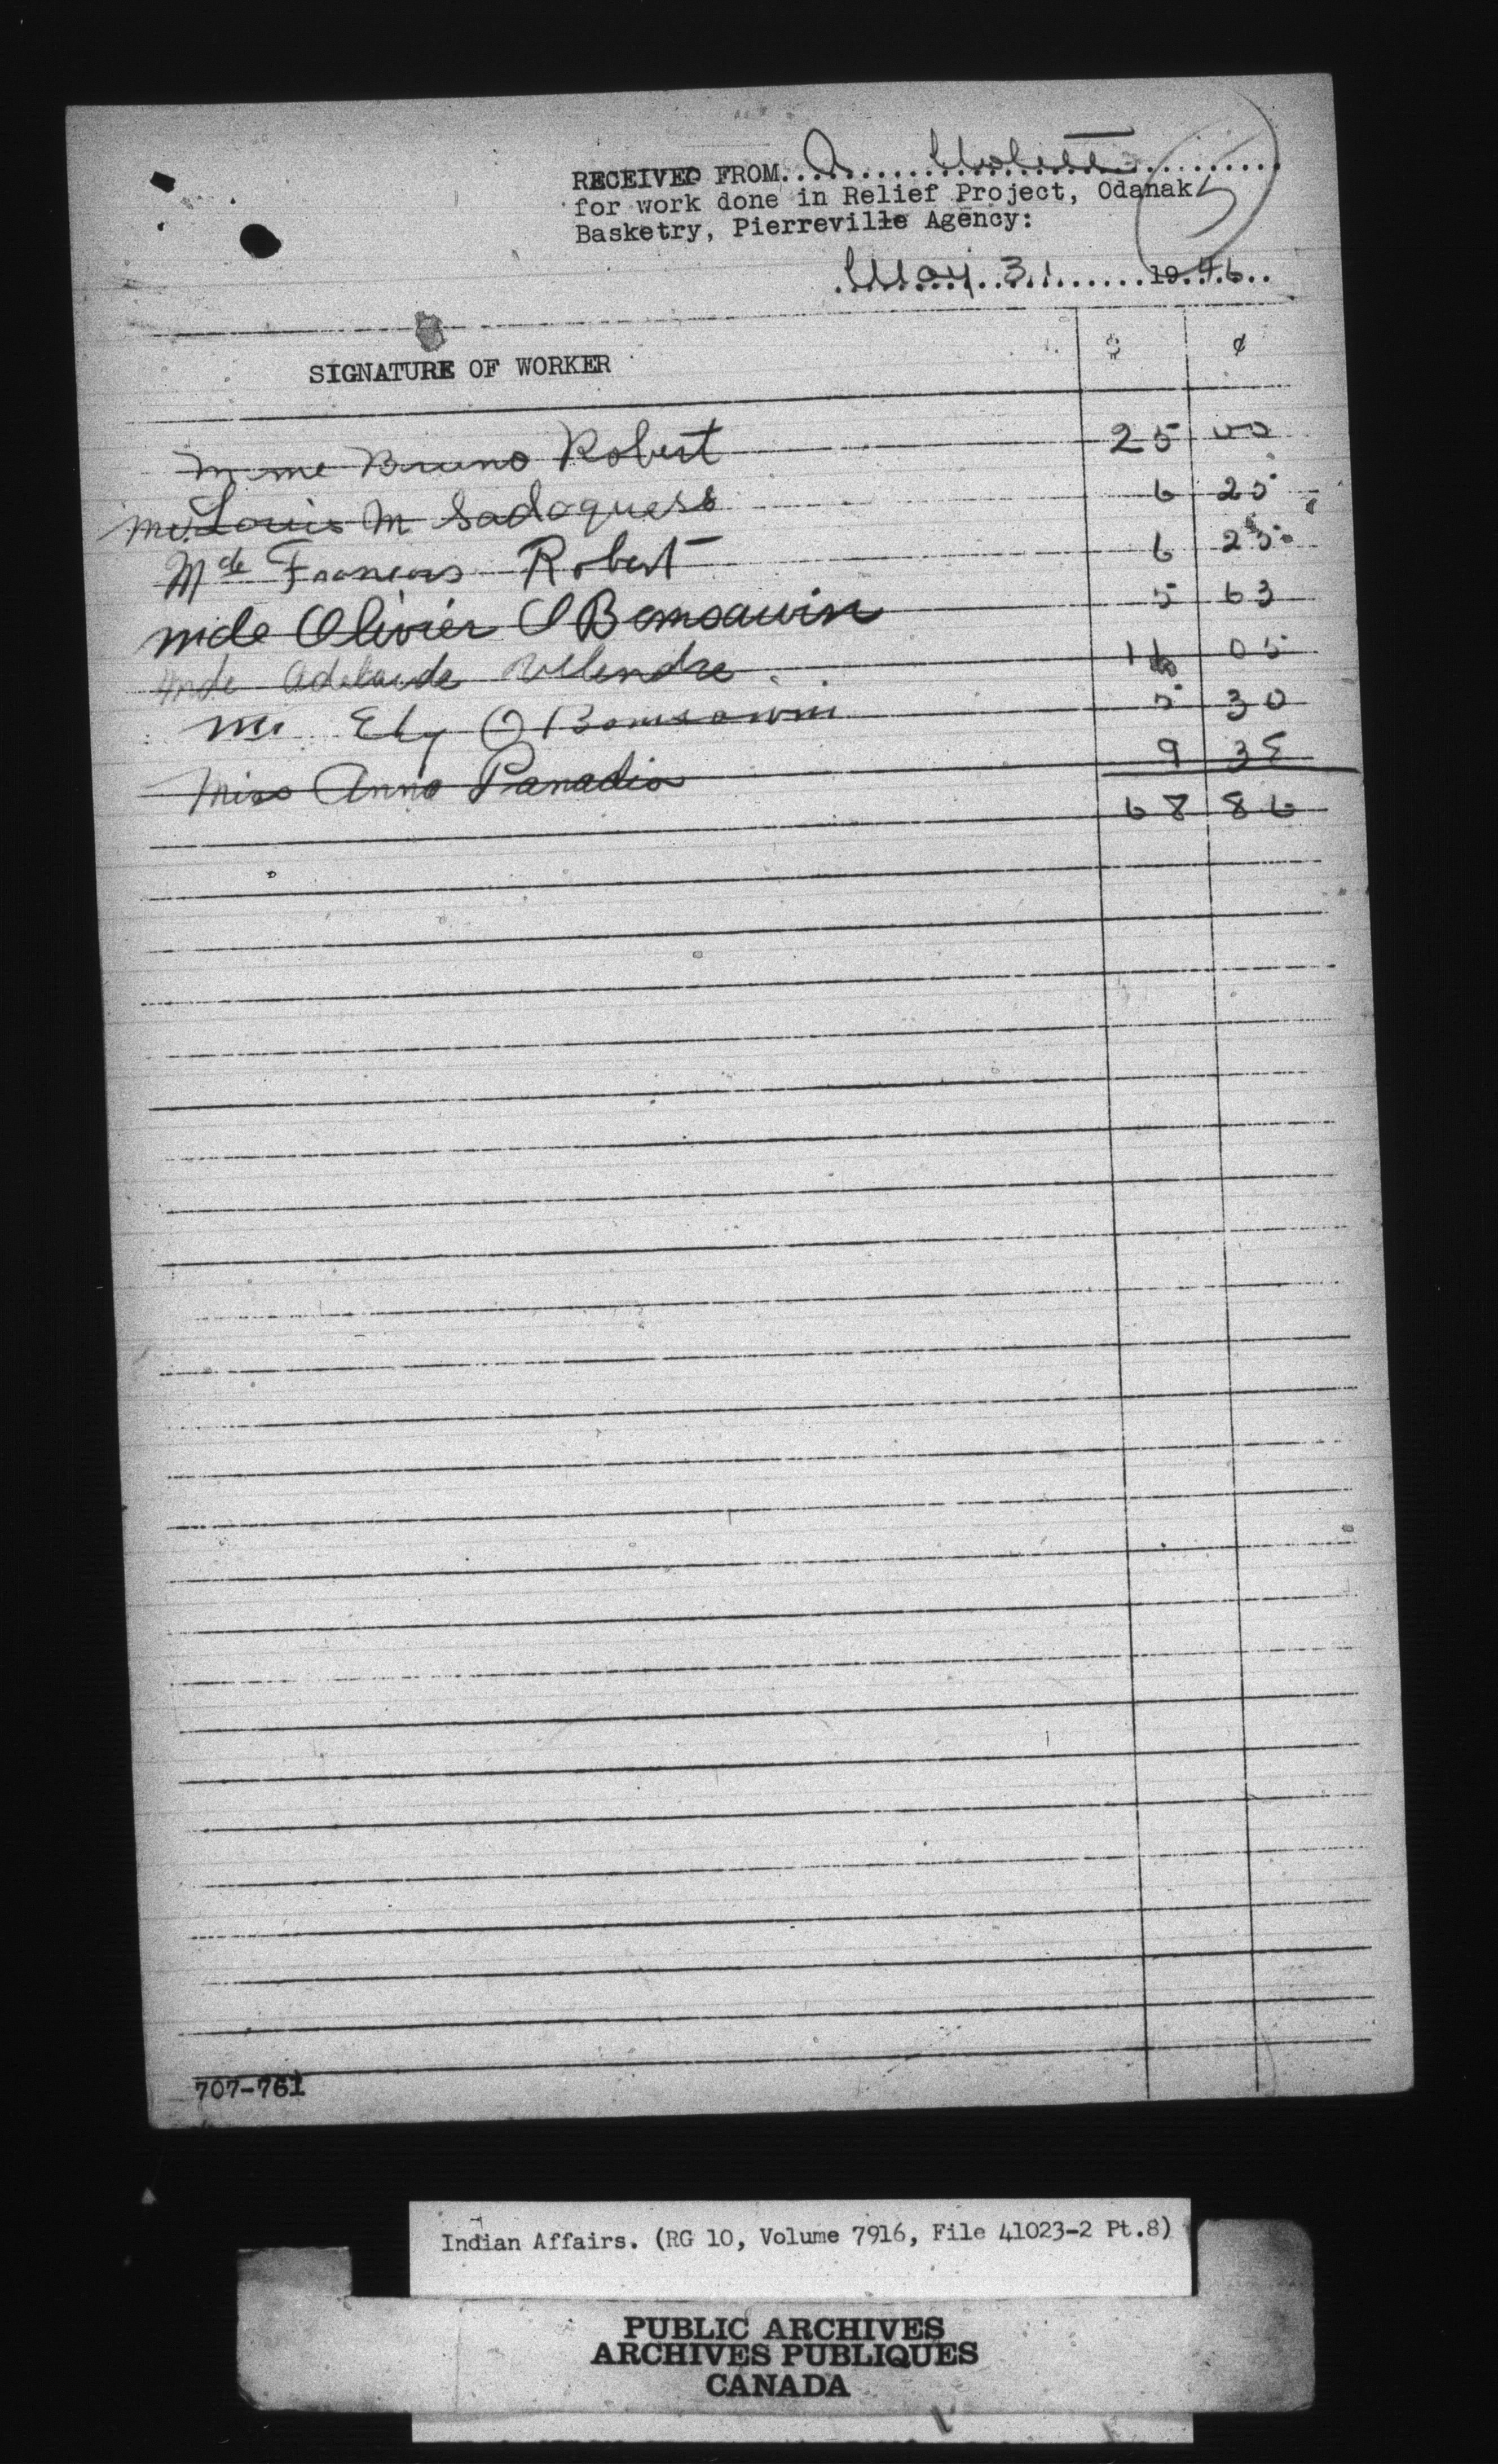 RECEIVED FROM
5
for work done in Relief Project, Odanak
Basketry, Pierreville Agency:
May 31 1946
SIGNATURE OF WORKER $ ¢
Mme Bruno Robert 25 00
Louis M Sadoques 6 25
Mde Francois Robert 6 25
Mde Olivier OBomsawin 5 63
Mde Adelaide 05
Ely O Bomsawin 5 30
Miss Anna Panadis 9 35
68 86
707-761
Indian Affairs. (RG 10, Volume 7916, File 41023-2 Pt.8)
PUBLIC ARCHIVES
ARCHIVES PUBLIQUES
CANADA